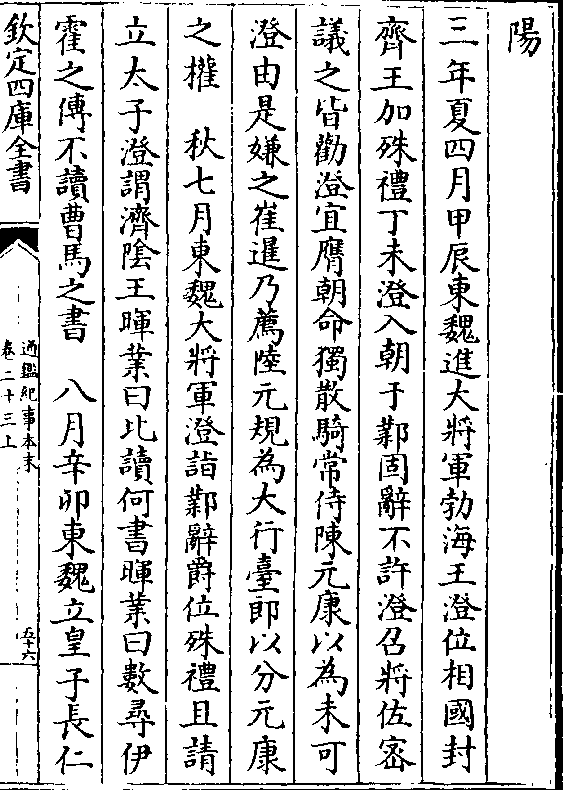 陽
三年夏四月甲辰東魏進大將軍勃海王澄位相國封
齊王加殊禮丁未澄入朝于鄴固辭不許澄召將佐宻
議之皆勸澄宜膺朝命獨散騎常侍陳元康以為未可
澄由是嫌之崔暹乃薦陸元規為大行臺郎以分元康
之權　秋七月東魏大將軍澄詣鄴辭爵位殊禮且請
立太子澄謂濟陰王暉業曰比讀何書暉業曰數尋伊
霍之傳不讀曹馬之書　八月辛卯東魏立皇子長仁
欽定四庫全書
通鑑紀事本末
卷二十三上
五十六